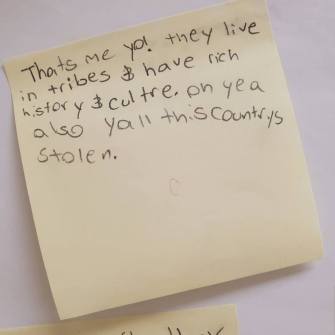 Thats me yo! they live
in tribes & have rich
history & cultre. oh yea
also yall this countrys
stolen.